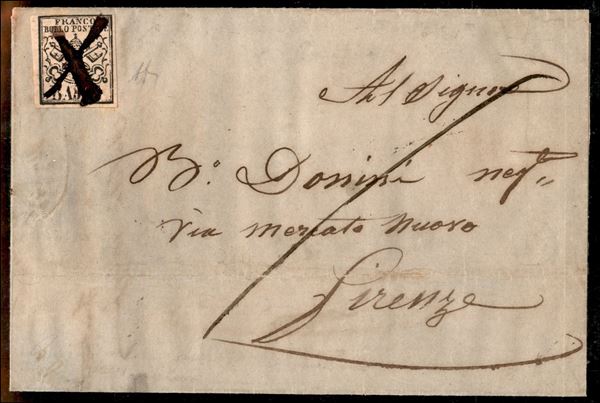 FRANCO
BOLLO POSTALE
BAJ
Al Signor
B.º Donnini negᵗᵉ
Via Mercato Nuovo
Firenze